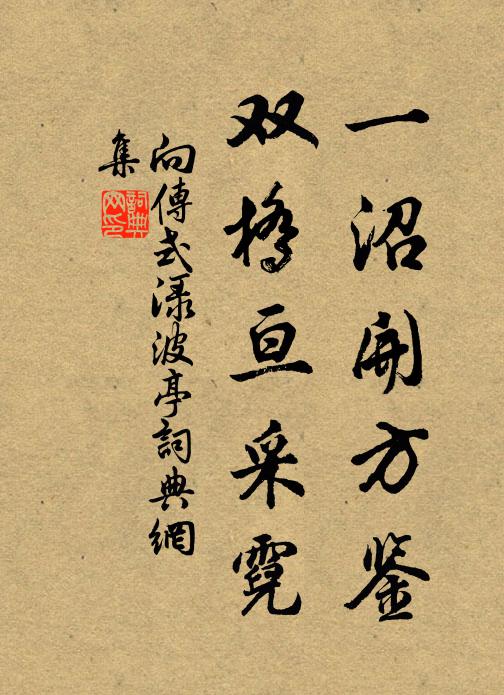 一沼開方鉴
双橋亘采霓
向傳式渌波亭詞典網
集
詞典
网印